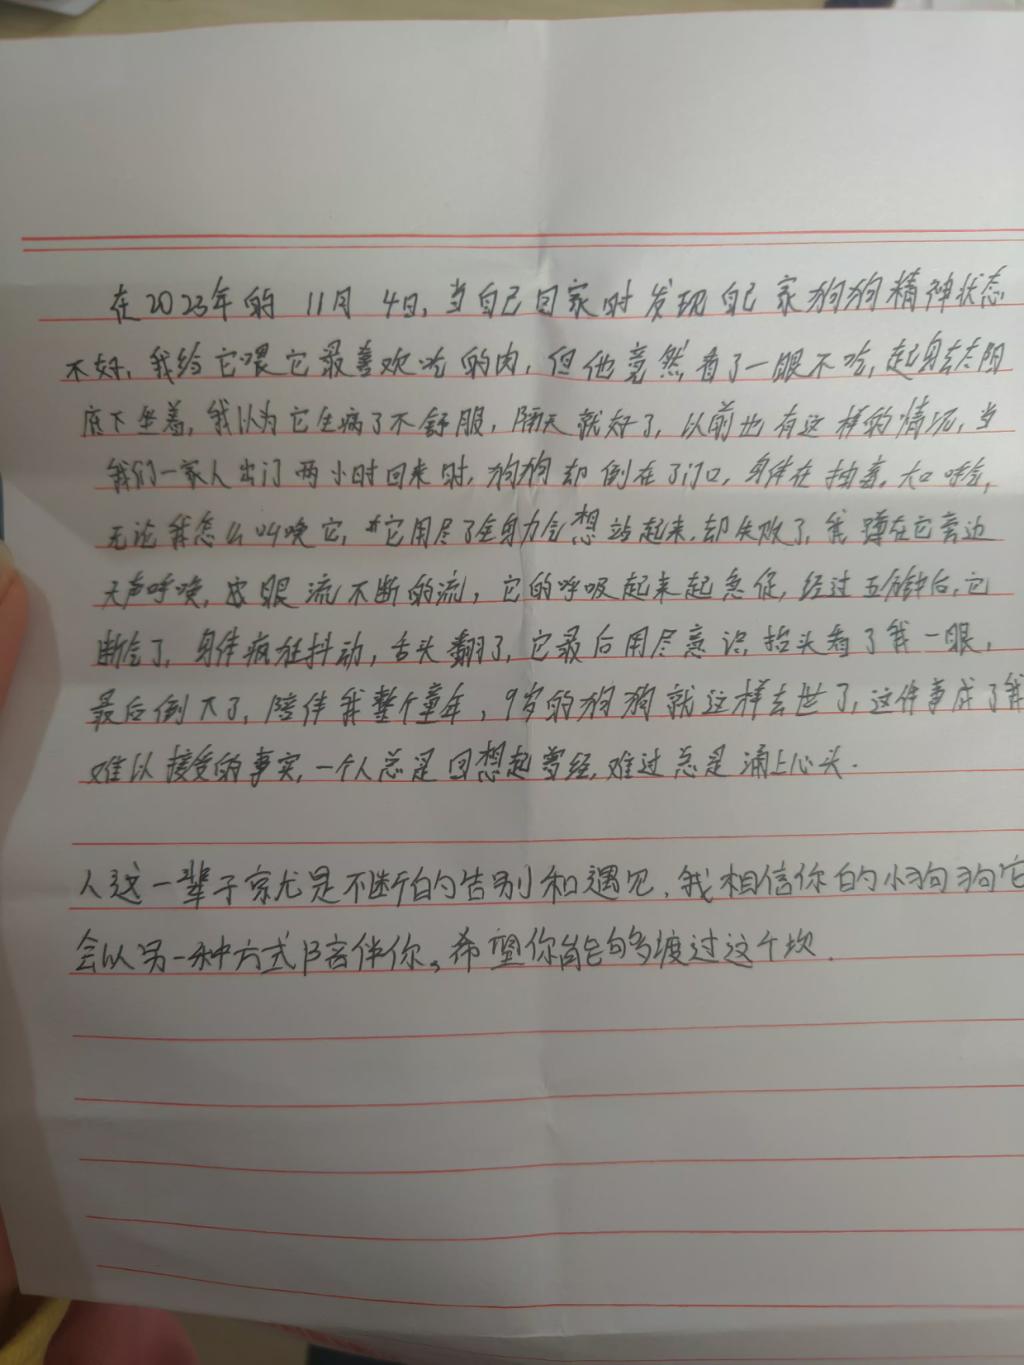 在2023年的 11月 4日,当自己回家时发现自己家狗狗精神状态
不好,我给它喂它最喜欢吃的肉,但他竟然看了一眼不吃,起身去太阳
底下坐着,我以为它生病了不舒服,隔天就好了,以前也有这样的情况,当
我们一家人出门两小时回来时,狗狗却倒在了门口,身体在抽畜,大口呼吸,
无论我怎么叫唤它,它用尽了全身力气想站起来,却失败了,我蹲在它旁边
大声呼唤,眼流不断的流,它的呼吸起来起急促,经过五分钟后,它
断气了,身体疯狂抖动,舌头翻了,它最后用尽意识抬头看了我一眼,
最后倒下了,陪伴我整个童年,9岁的狗狗就这样去世了,这件事成了我
难以接受的事实,一个人总是回想起曾经,难过总是涌上心头.
人这一辈子就是不断的告别和遇见,我相信你的小狗狗它
会以另一种方式陪伴你。希望你能够渡过这个坎.